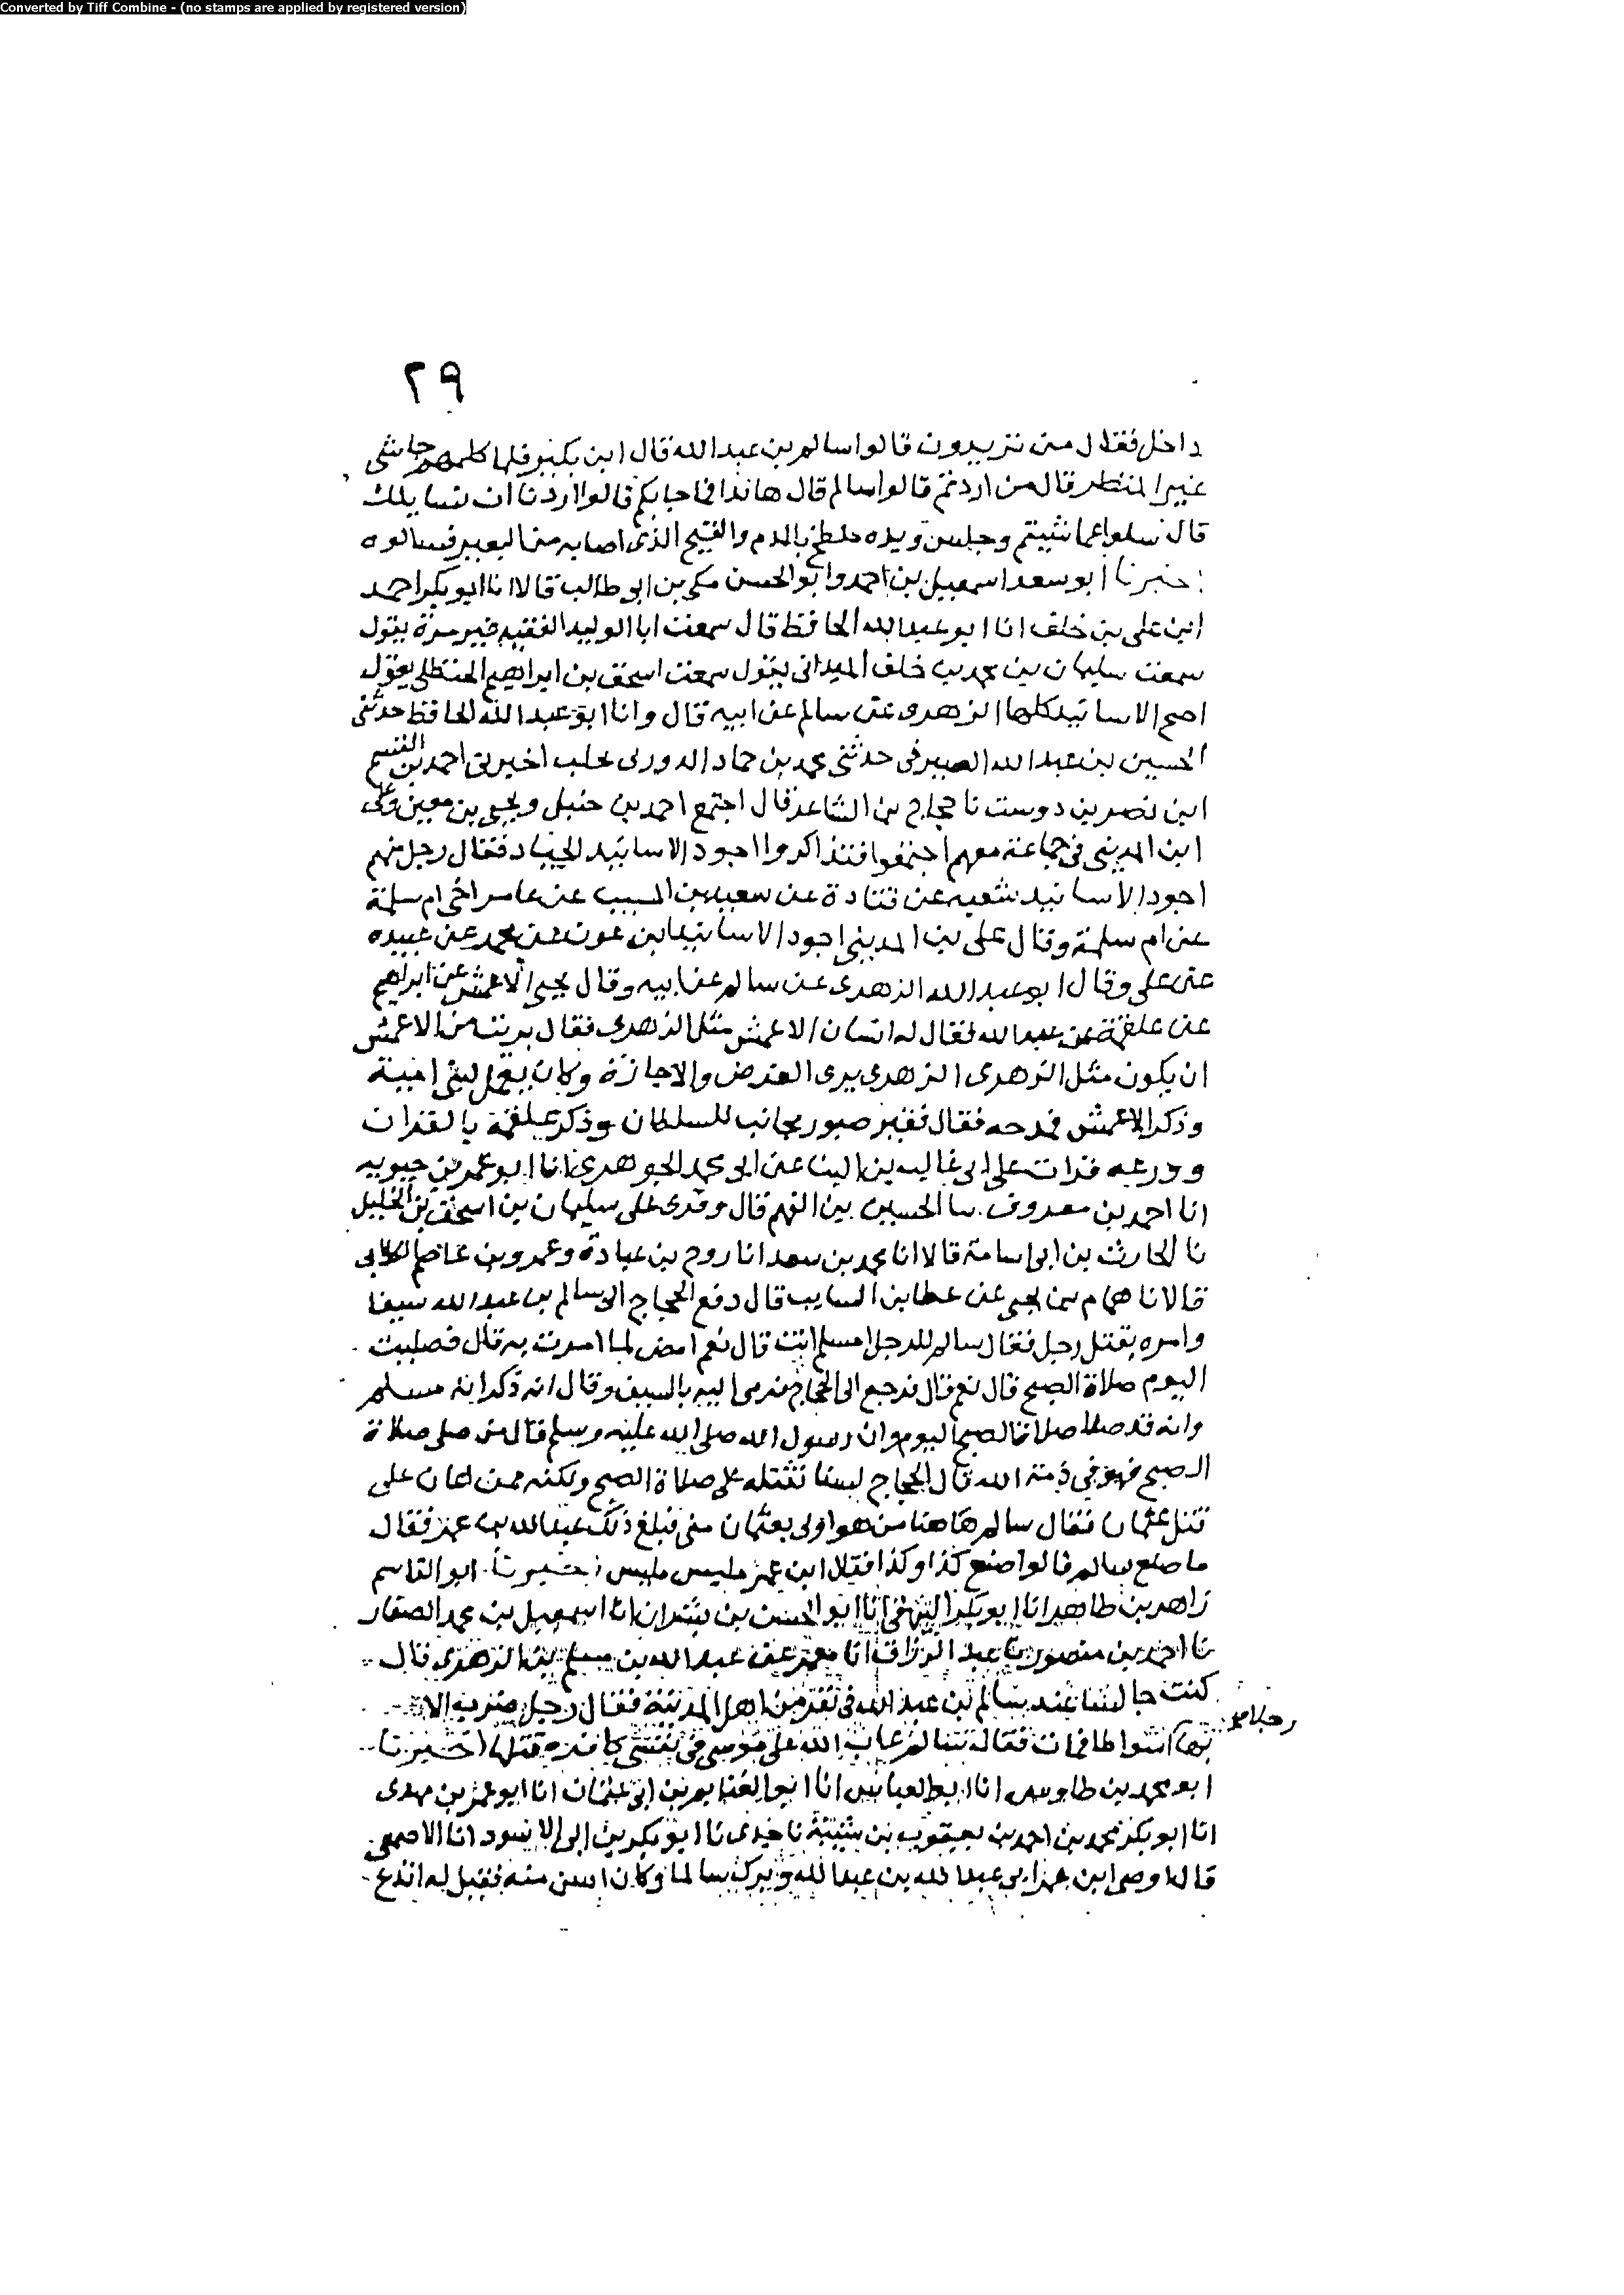 Converted by Tiff Combine - (no stamps are applied by registered version)
٢٩
داخل فقال من تريدون قالوا سالم بن عبد الله قال ابن بكير فلما كلمهم جا شى
غير المنظر قال من اردتم قالوا سالم قال هانذا فما جابكم قالوا اردنا ان نسايلك
قال سلوا عما شيتم وجلس ويده ملطخ بالدم والقيح الذى اصابه من البعير فسالوه
اخبرنا ابو سعد اسمعيل بن احمد وابو الحسن مكى بن ابى طالب قالا انا ابو بكر احمد
ابن على بن خلف انا ابو عبد الله الحافظ قال سمعت ابا الوليد الفقيه غير مرة يقول
سمعت سليمان بن محمد بن خلف الميدانى يقول سمعت اسحق بن ابراهيم الحنظلى يقول
اصح الاسانيد كلها الزهرى عن سالم عن ابيه قال وانا ابو عبد الله الحافظ حدثنى
الحسين بن عبد الله الصيرفى حدثنى محمد بن حماد الدورى بحلب اخبرنى احمد بن القسم
ابن نصر بن دوست نا حجاج بن الشاعر قال اجتمع احمد بن حنبل ويحيى بن معين وعلى
ابن المدينى فى جماعة معهم اجتمعوا فتذاكروا اجود الاسانيد الجياد فقال رجل منهم
اجود الاسانيد شعبه عن قتادة عن سعيد بن المسيب عن عامر اخى ام سلمة
عن ام سلمة وقال على بن المدينى اجود الاسانيد ابن عون عن محمد عن عبيده
عن على وقال ابو عبد الله الزهرى عن سالم عن ابيه وقال يحيى الاعمش عن ابراهيم
عن علقمة عن عبد الله فقال له انسان الاعمش مثل الزهرى فقال بريت من الاعمش
ان يكون مثل الزهرى الزهرى يرى العرض والاجازة وكان يعمل لبنى امية
وذكر الاعمش فمدحه فقال فقير صبور مجانب للسلطان وذكر علمه بالقران
وورعه قرات على ابى غالب بن البنا عن ابى محمد الجوهرى انا ابو عمر بن حيويه
انا احمد بن معروف نا الحسين بن الفهم قال وقرى على سليمان بن اسحق بن الخليل
نا الحارث بن ابى اسامة قالا انا محمد بن سعد انا روح بن عبادة وعمرو بن عاصم الكلابى
قالا نا همام بن يحيى عن عطا بن السايب قال دفع الحجاج الى سالم بن عبد الله سيفا
وامره بقتل رجل فقال سالم للرجل امسلم انت قال نعم امض لما امرت به قال فصليت
اليوم صلاة الصبح قال نعم قال فرجع الى الحجاج فرمى اليه بالسيف وقال انه ذكر انه مسلم
وانه قد صلا صلاة الصبح اليوم وان رسول الله صلى الله عليه وسلم قال من صلى صلاة
الصبح فهو فى ذمة الله قال الحجاج لسنا نقتله على صلاة الصبح ولكنه ممن اعان على
قتل عثمان فقال سالم هاهنا من هو اولى بعثمان منى فبلغ ذلك عبد الله بن عمر فقال
ما صنع سالم قالوا صنع كذا وكذا فقال ابن عمر مكيس مكيس اخبرنا ابو القاسم
زاهر بن طاهر انا ابو بكر البيهقى انا ابو الحسن بن بشران انا اسمعيل بن محمد الصفار
نا احمد بن منصور نا عبد الرزاق انا معمر عن عبد الله بن مسلم اخى الزهرى قال
كنت جالسا عند سالم بن عبد الله فى نفر من اهل المدينة فقال رجل ضرب الامير
رجلا
اسواطا فمات فقال سالم عاب الله على موسى فى نفس كافره قتلها اخبرنا
ابو محمد بن طاوس انا ابو الغنايم بن ابى عثمان انا ابو عمر بن مهدى
انا ابو بكر محمد بن احمد بن يعقوب بن شيبة نا جدى نا ابو بكر بن ابى الاسود انا الاصمعى
قال اوصى ابن عمر الى عبد الله بن عبد الله وترك سالما وكان اسن منه فقيل له اتدع